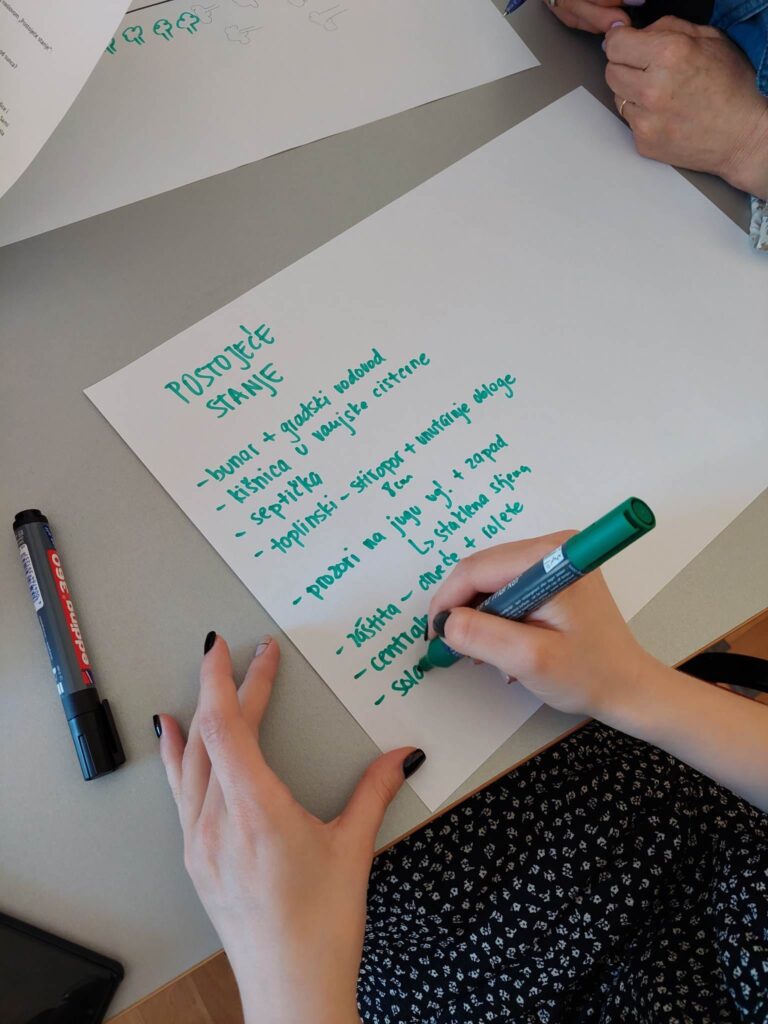 POSTOJEĆE
STANJE
- bunar + gradski vodovod
- kišnica u vanjske cisterne
- septička
- toplinski - stiropor + unutarnje obloge
8cm
- prozori na jugu ugl. + zapad
↳ staklena stjena
- zaštita - drveće + rolete
- central
- sola
edding 360